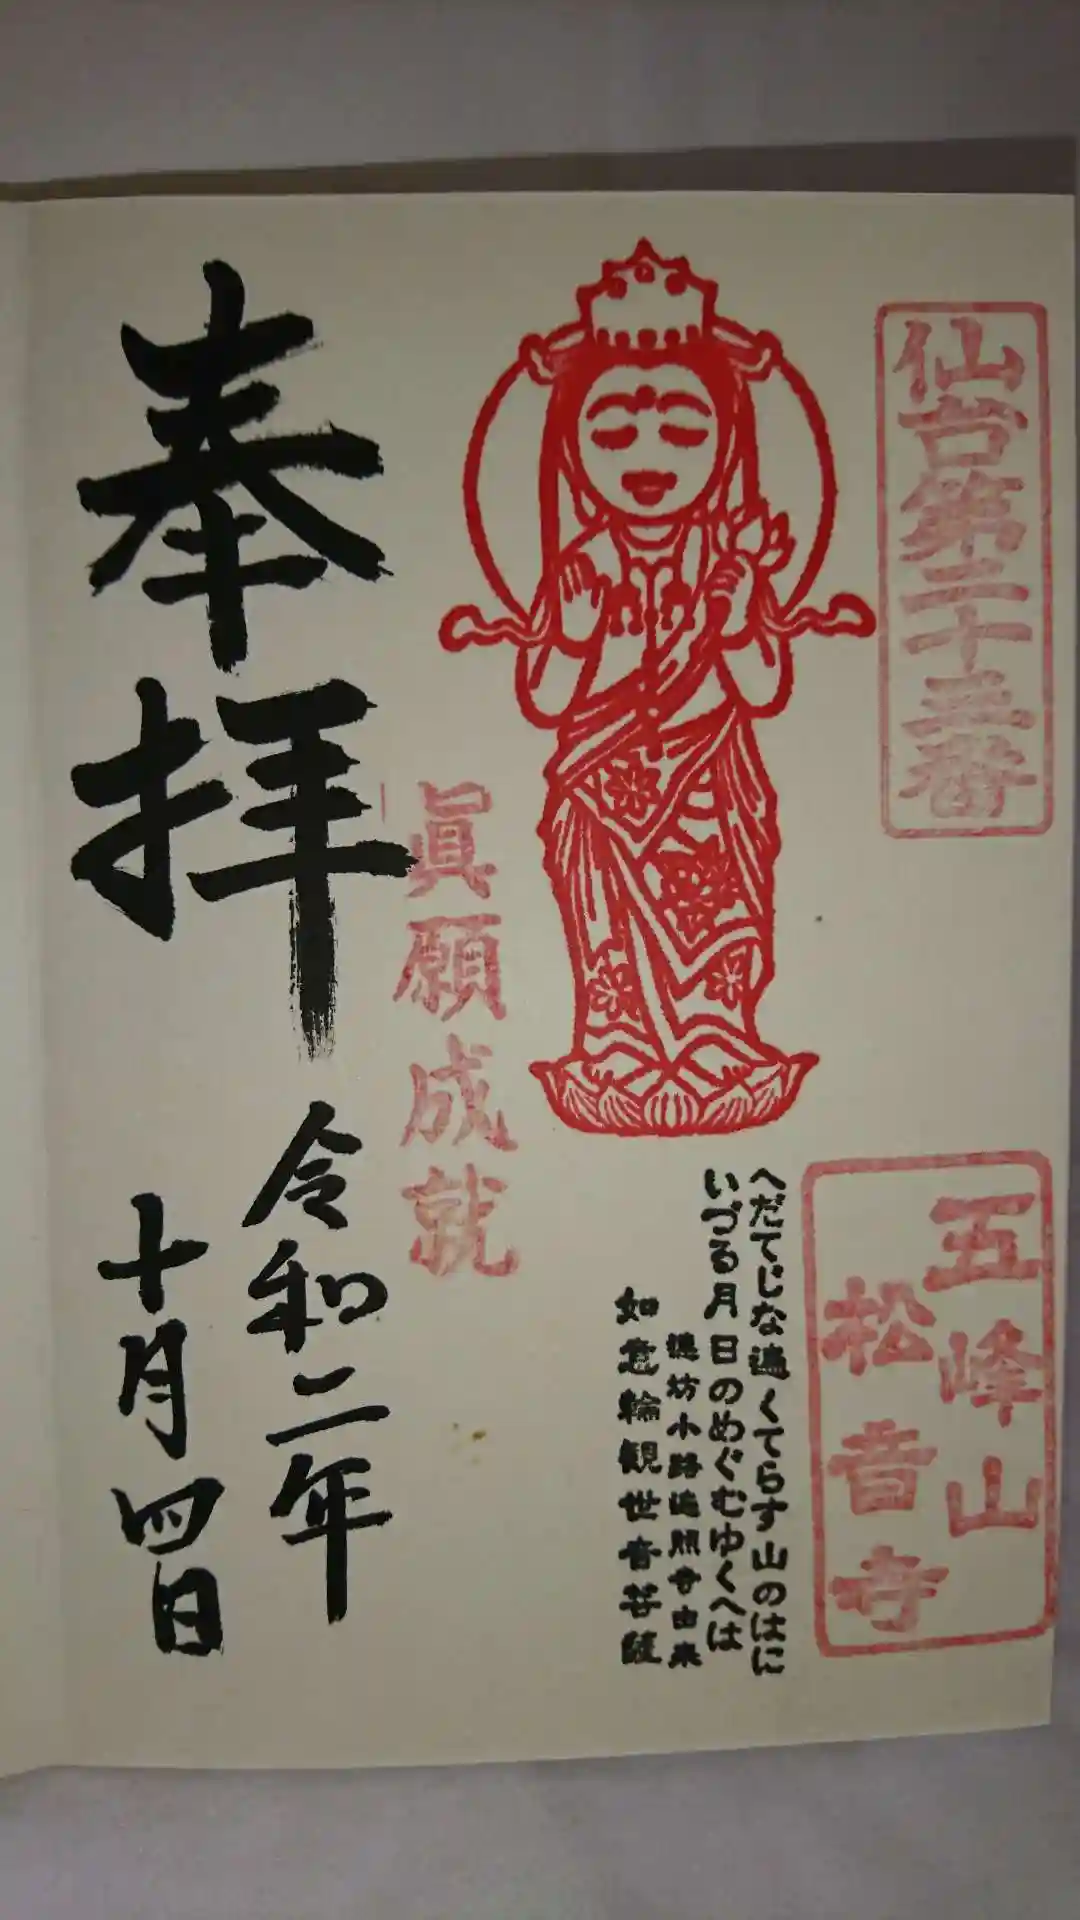 仙台第二十三番
五峰山
松音寺
へだてじな遍くてらす山のはに
いづる月日のめぐむゆくへは
坊小路遍照寺由来
如意輪観世音菩薩
眞願成就
奉拝
令和二年
十月四日